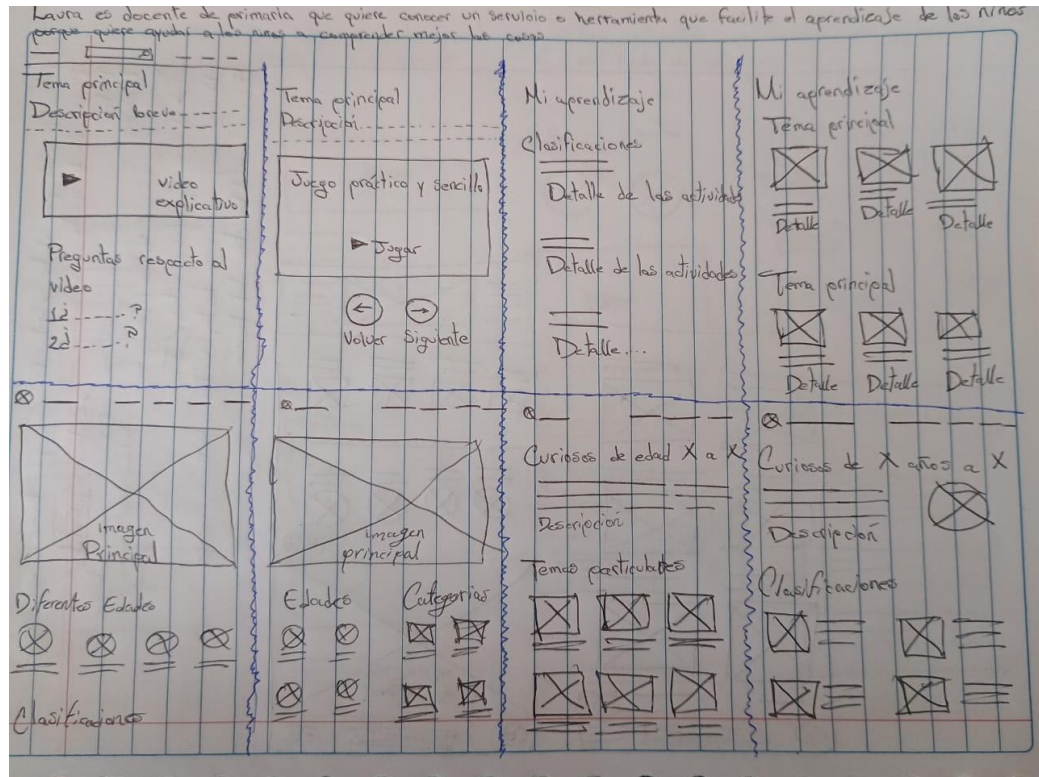 Laura es docente de primaria que quiere conocer un servicio o herramienta que facilite el aprendizaje de los niños
porque quiere ayudar a los niños a comprender mejor las cosas
Tema principal
Descripción breve
video
explicativo
Preguntas respecto al
video
1¿ ........?
2¿ ........?
Tema principal
Descripción
Juego práctico y sencillo
Jugar
Volver Siguiente
Mi aprendizaje
Clasificaciones
Detalle de las actividades
Detalle de las actividades
Detalle....
Mi aprendizaje
Tema principal
Detalle Detalle Detalle
Tema principal
Detalle Detalle Detalle
Imagen
Principal
Diferentes Edades
Clasificaciones
imagen
principal
Edades Categorias
Curiosos de edad X a X
Descripción
Temas particulares
Curiosos de X años a X
Descripción
Clasificaciones